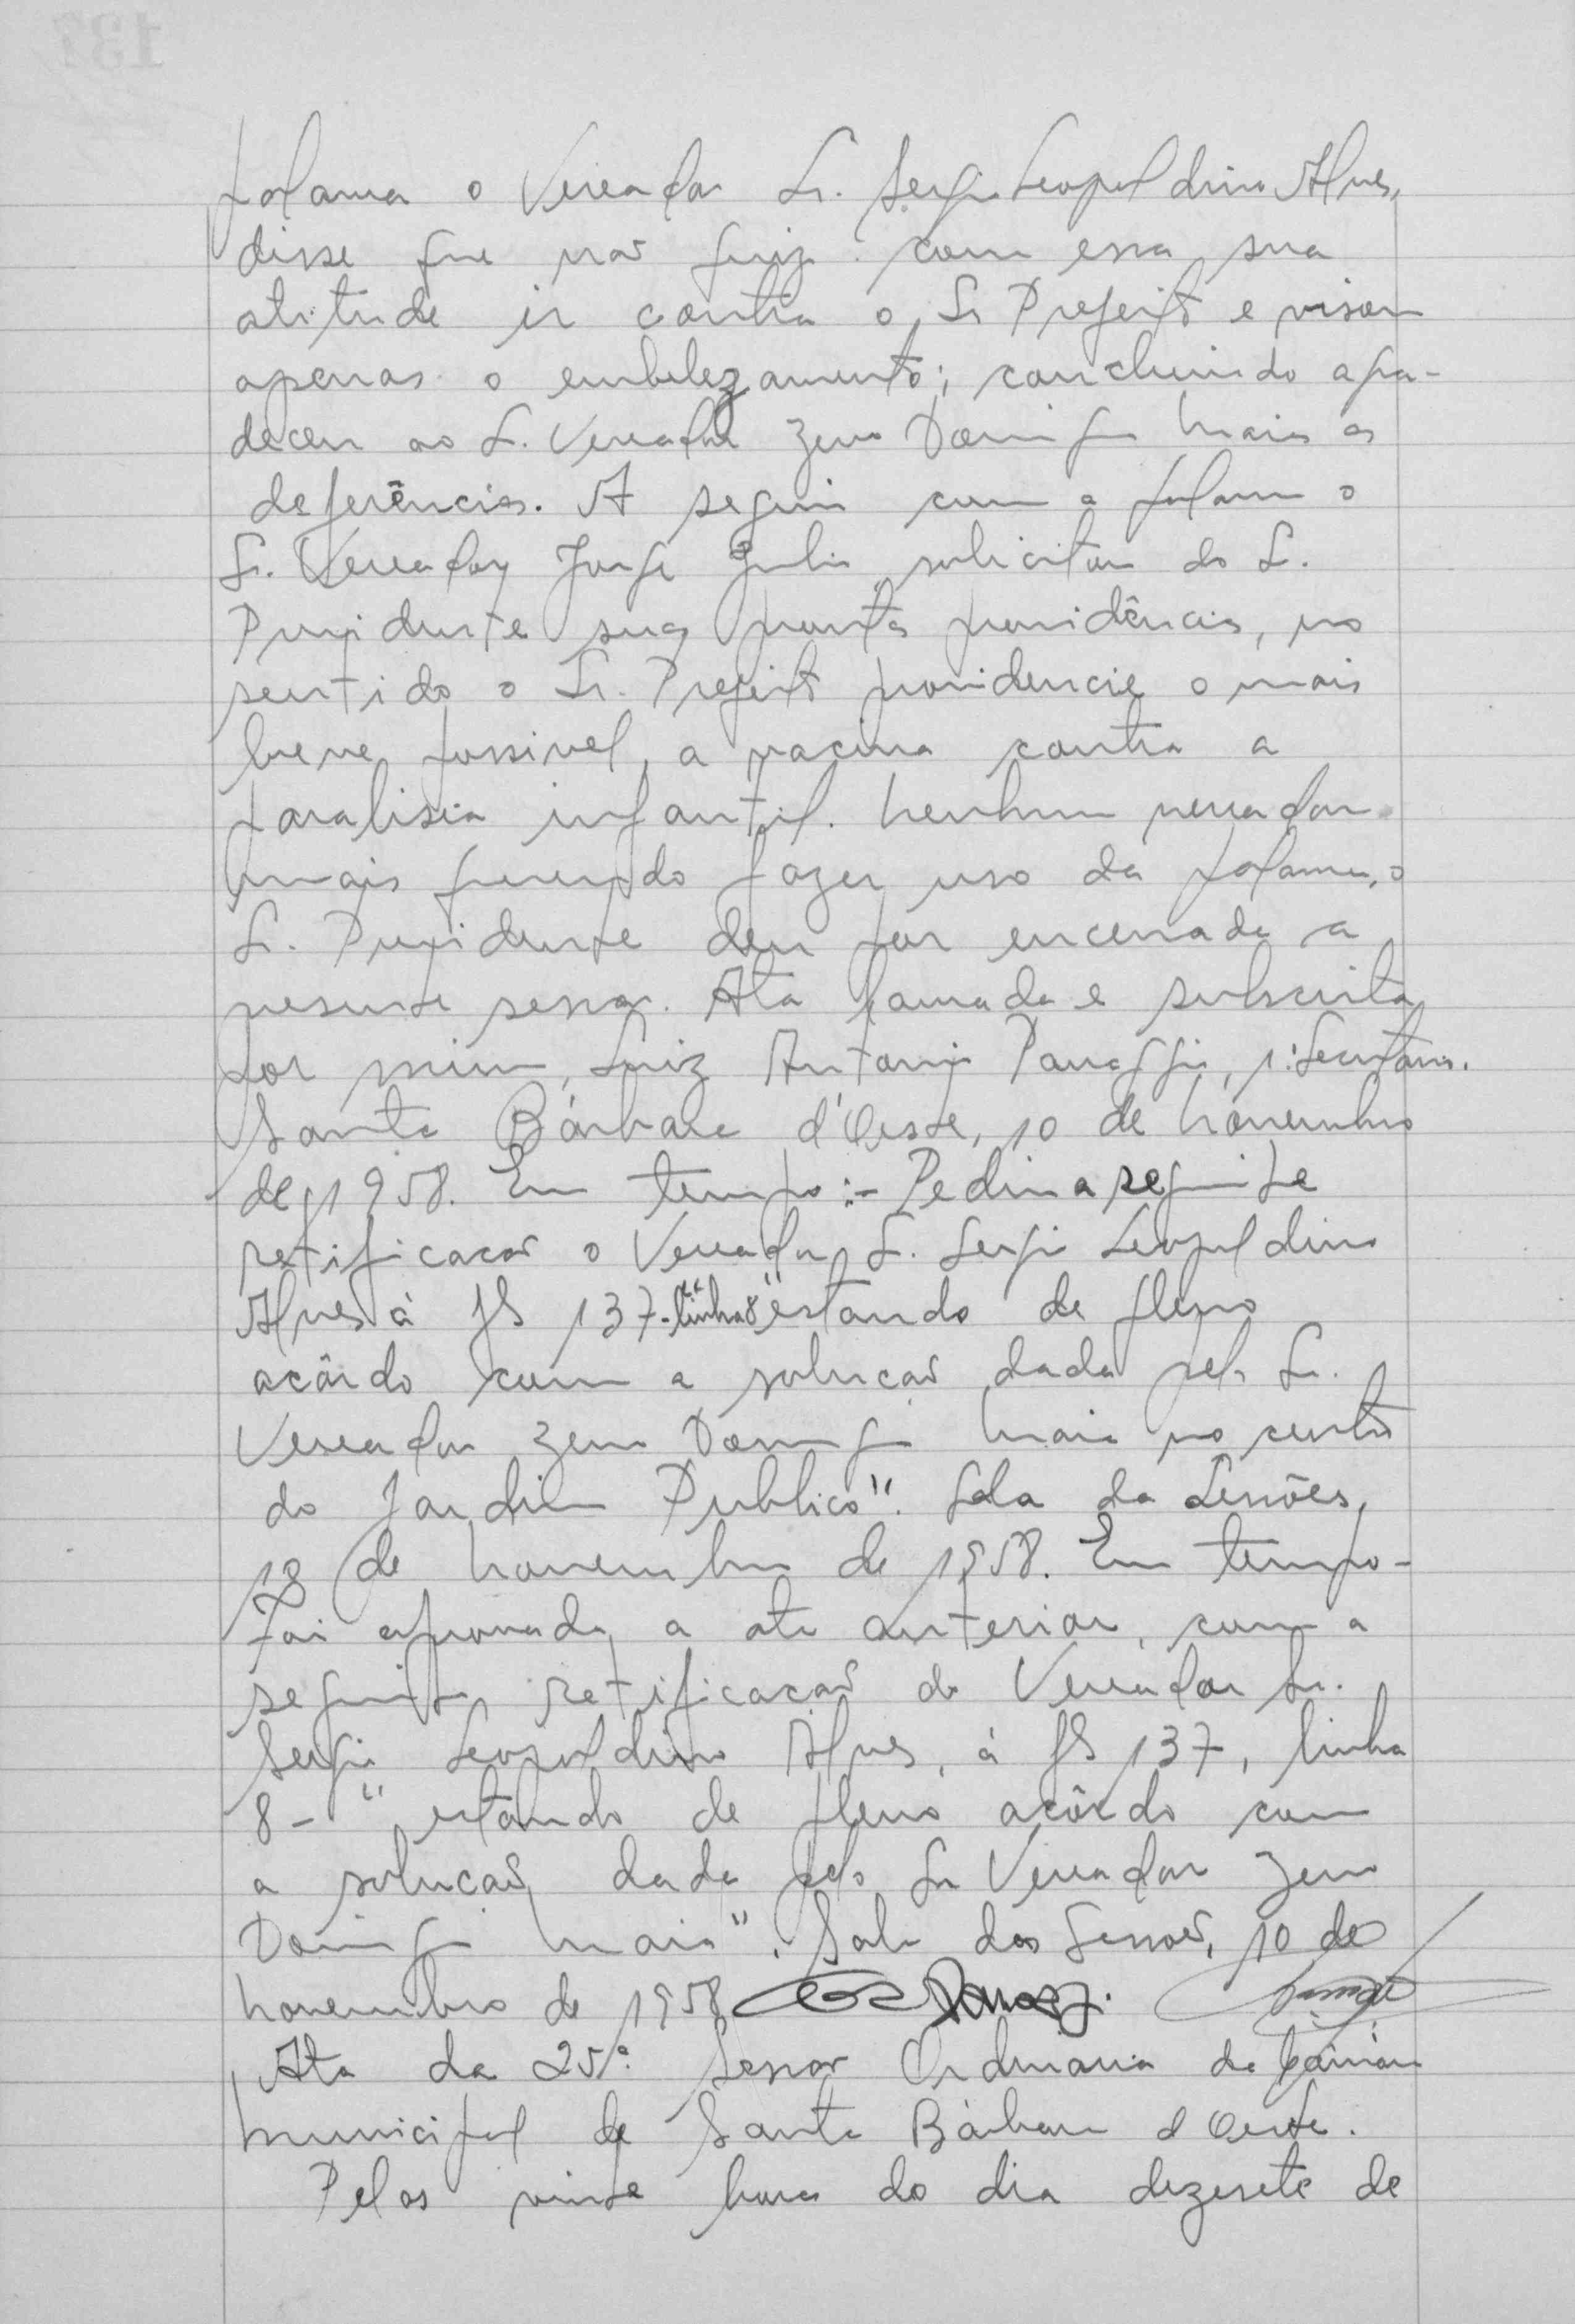 palavra o Vereador Sr. Sergio Leopoldino Alves,
disse que não quiz com essa sua
atitude ir contra o Sr Prefeito e visou
apenas o embelezamento; concluindo agra-
deceu ao Sr. Vereador Zeno Domingos Maia as
deferências. A seguir com a palavra o
Sr. Vereador Jorge Julio solicitou do Sr.
Presidente suas prontas providências, no
sentido o Sr. Prefeito providencie o mais
breve possivel, a vacina contra a
paralisia infantil. Nenhum vereador
mais querendo fazer uso da palavra, o
Sr. Presidente deu por encerrada a
presente sessão. Ata lavrada e subscrita
por mim, Luiz Antonio Panaggio, 1º Secretário.
Santa Bárbara d'Oeste, 10 de Novembro
de 1958. Em tempo:- Pediu a seguinte
retificacão o Vereador Sr. Sergio Leopoldino
Alves à fls 137-linha 8 "estando de pleno
acôrdo com a solucão dada pelo Sr.
Vereador Zeno Domingos Maia no centro
do Jardim Publico". Sala da Sessões,
18 de Novembro de 1958. Em tempo-
Foi aprovada a ata anterior, com a
seguinte retificacão do Vereador Sr.
Sergio Leopoldino Alves, à fls 137, linha
8- "estando de pleno acôrdo com
a solucão dada pelo Sr Vereador Zeno
Domingos Maia". Sala das Sessões, 10 de
Novembro de 1958
Ata da 25ª Sessão Ordinaria da Câmara
Municipal de Santa Bárbara d Oeste.
Pelas vinte horas do dia dezesete de